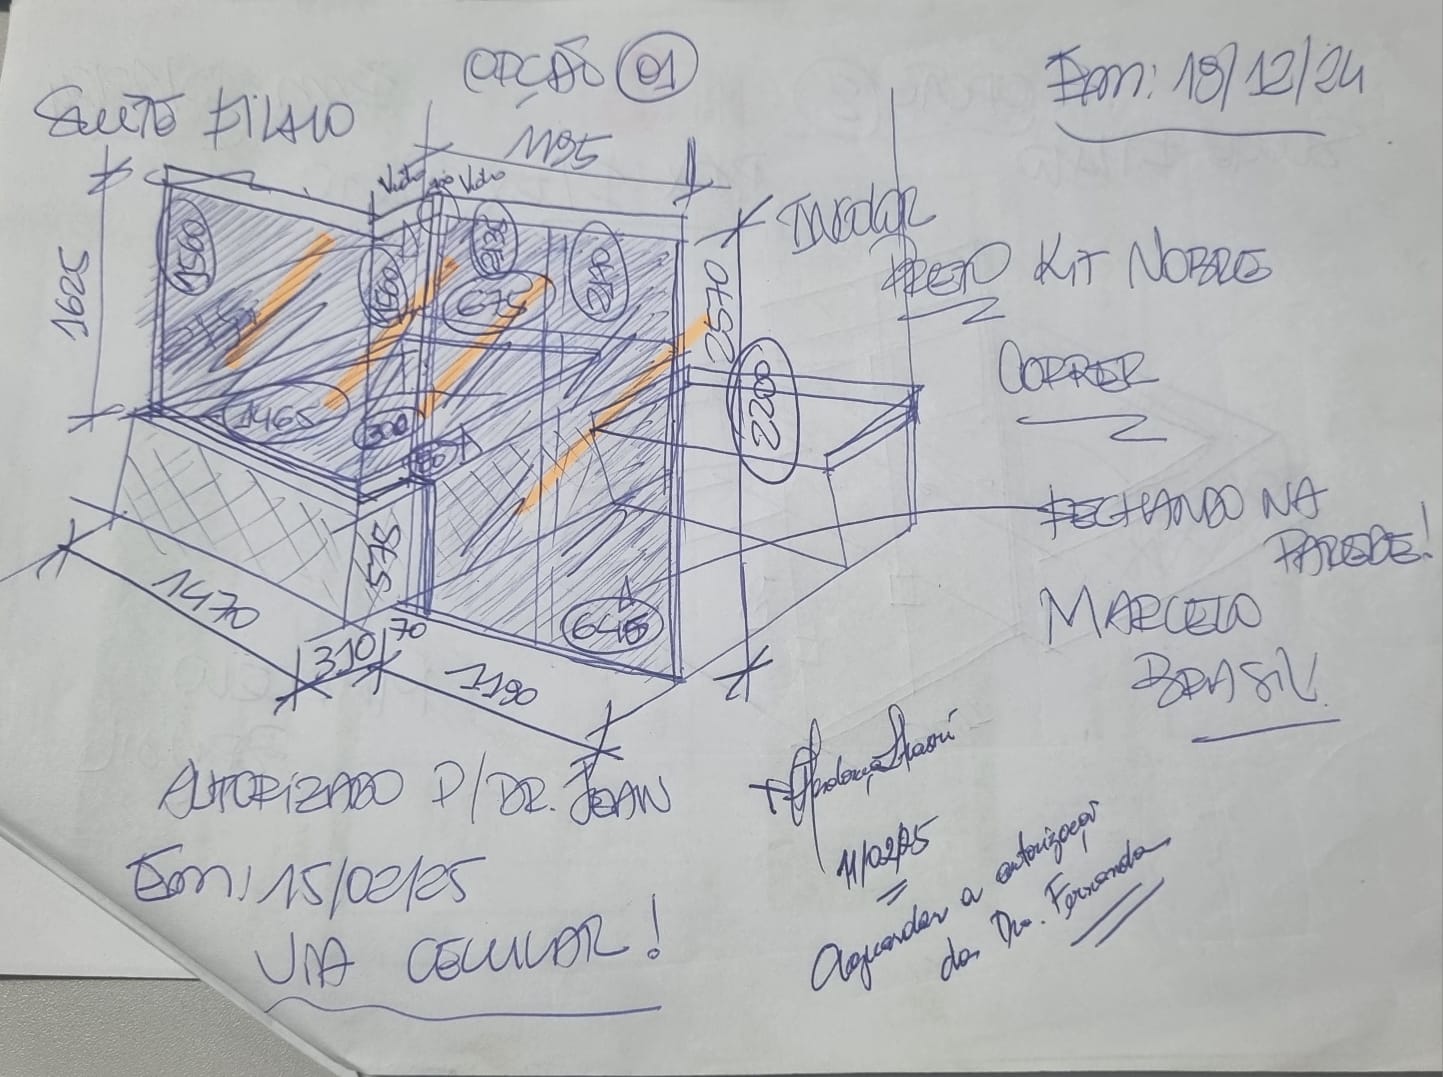 OPÇÃO 01
Em: 18/12/24
SUITE FILHO
1195
Vidro no Vidro
INCOLOR
PRETO KIT NOBRE
CORRER
FECHANDO NA
PAREDE!
MARCELO
BRASIL
1625
1560
1560
2130
2140
675
2570
2200
1465
300
60
575
645
1470
310
70
1190
AUTORIZADO P/ DR. JEAN
Em: 15/02/25
VIA CELULAR!
11/02/25
Aguardar a autorização
da Dra. Fernanda